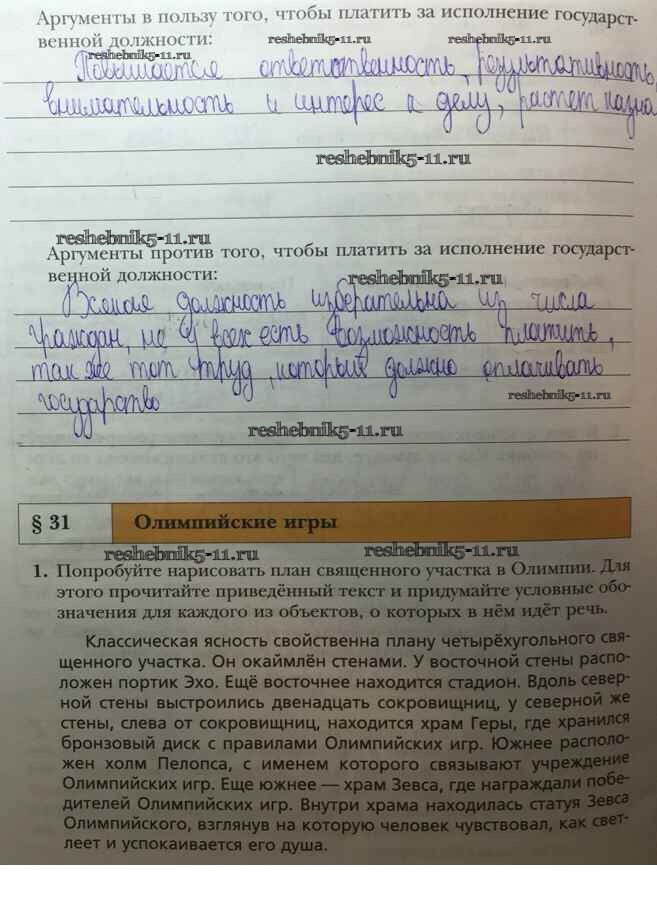 Аргументы в пользу того, чтобы платить за исполнение государст-
венной должности:
reshebnik5-11.ru
reshebnik5-11.ru
reshebnik5-11.ru
Повышается ответственность, результативность,
внимательность и интерес к делу, растет казна
reshebnik5-11.ru
reshebnik5-11.ru
Аргументы против того, чтобы платить за исполнение государст-
венной должности:
reshebnik5-11.ru
должность избирательна из числа
граждан, не у всех есть возможность платить,
так же тот труд, который должно оплачивать
государство
reshebnik5-11.ru
reshebnik5-11.ru
§ 31 Олимпийские игры
reshebnik5-11.ru
1. Попробуйте нарисовать план священного участка в Олимпии. Для
этого прочитайте приведённый текст и придумайте условные обо-
значения для каждого из объектов, о которых в нём идёт речь.
Классическая ясность свойственна плану четырёхугольного свя-
щенного участка. Он окаймлён стенами. У восточной стены распо-
ложен портик Эхо. Ещё восточнее находится стадион. Вдоль север-
ной стены выстроились двенадцать сокровищниц, у северной же
стены, слева от сокровищниц, находится храм Геры, где хранился
бронзовый диск с правилами Олимпийских игр. Южнее располо-
жен холм Пелопса, с именем которого связывают учреждение
Олимпийских игр. Еще южнее — храм Зевса, где награждали побе-
дителей Олимпийских игр. Внутри храма находилась статуя Зевса
Олимпийского, взглянув на которую человек чувствовал, как свет-
леет и успокаивается его душа.